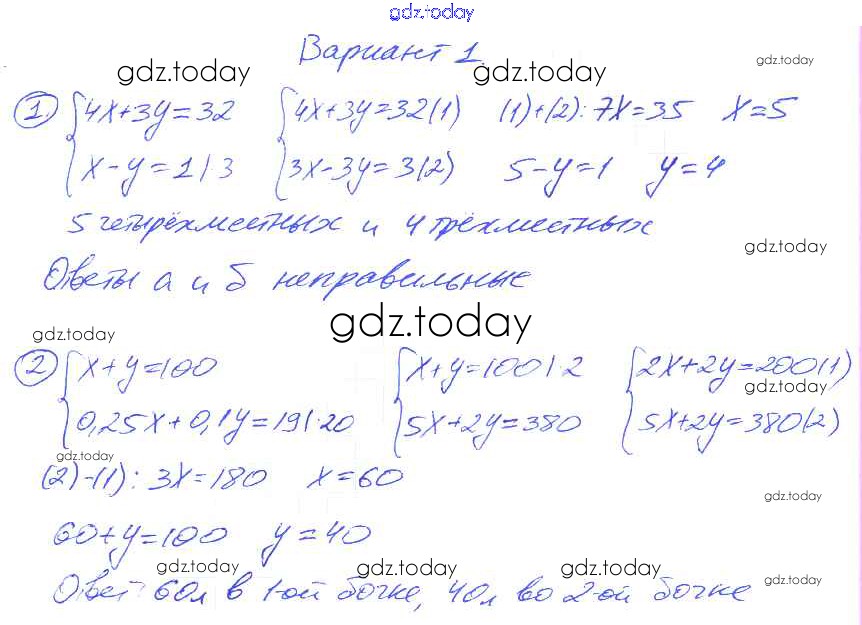 gdz.today
Вариант 1
gdz.today gdz.today gdz.today
1 { 4x+3y=32 { 4x+3y=32 (1) (1)+(2): 7x=35 x=5
x-y=1 |·3 3x-3y=3 (2) 5-y=1 y=4
5 четырёхместных и 4 трёхместных
gdz.today
Ответы а и б неправильные
gdz.today gdz.today
2 { x+y=100 { x+y=100 |·2 { 2x+2y=200 (1)
gdz.today
0,25x+0,1y=19 |·20 5x+2y=380 5x+2y=380 (2)
gdz.today
(2)-(1): 3x=180 x=60
gdz.today
60+y=100 y=40
gdz.today gdz.today gdz.today gdz.today
Ответ: 60л в 1-ой бочке, 40л во 2-ой бочке